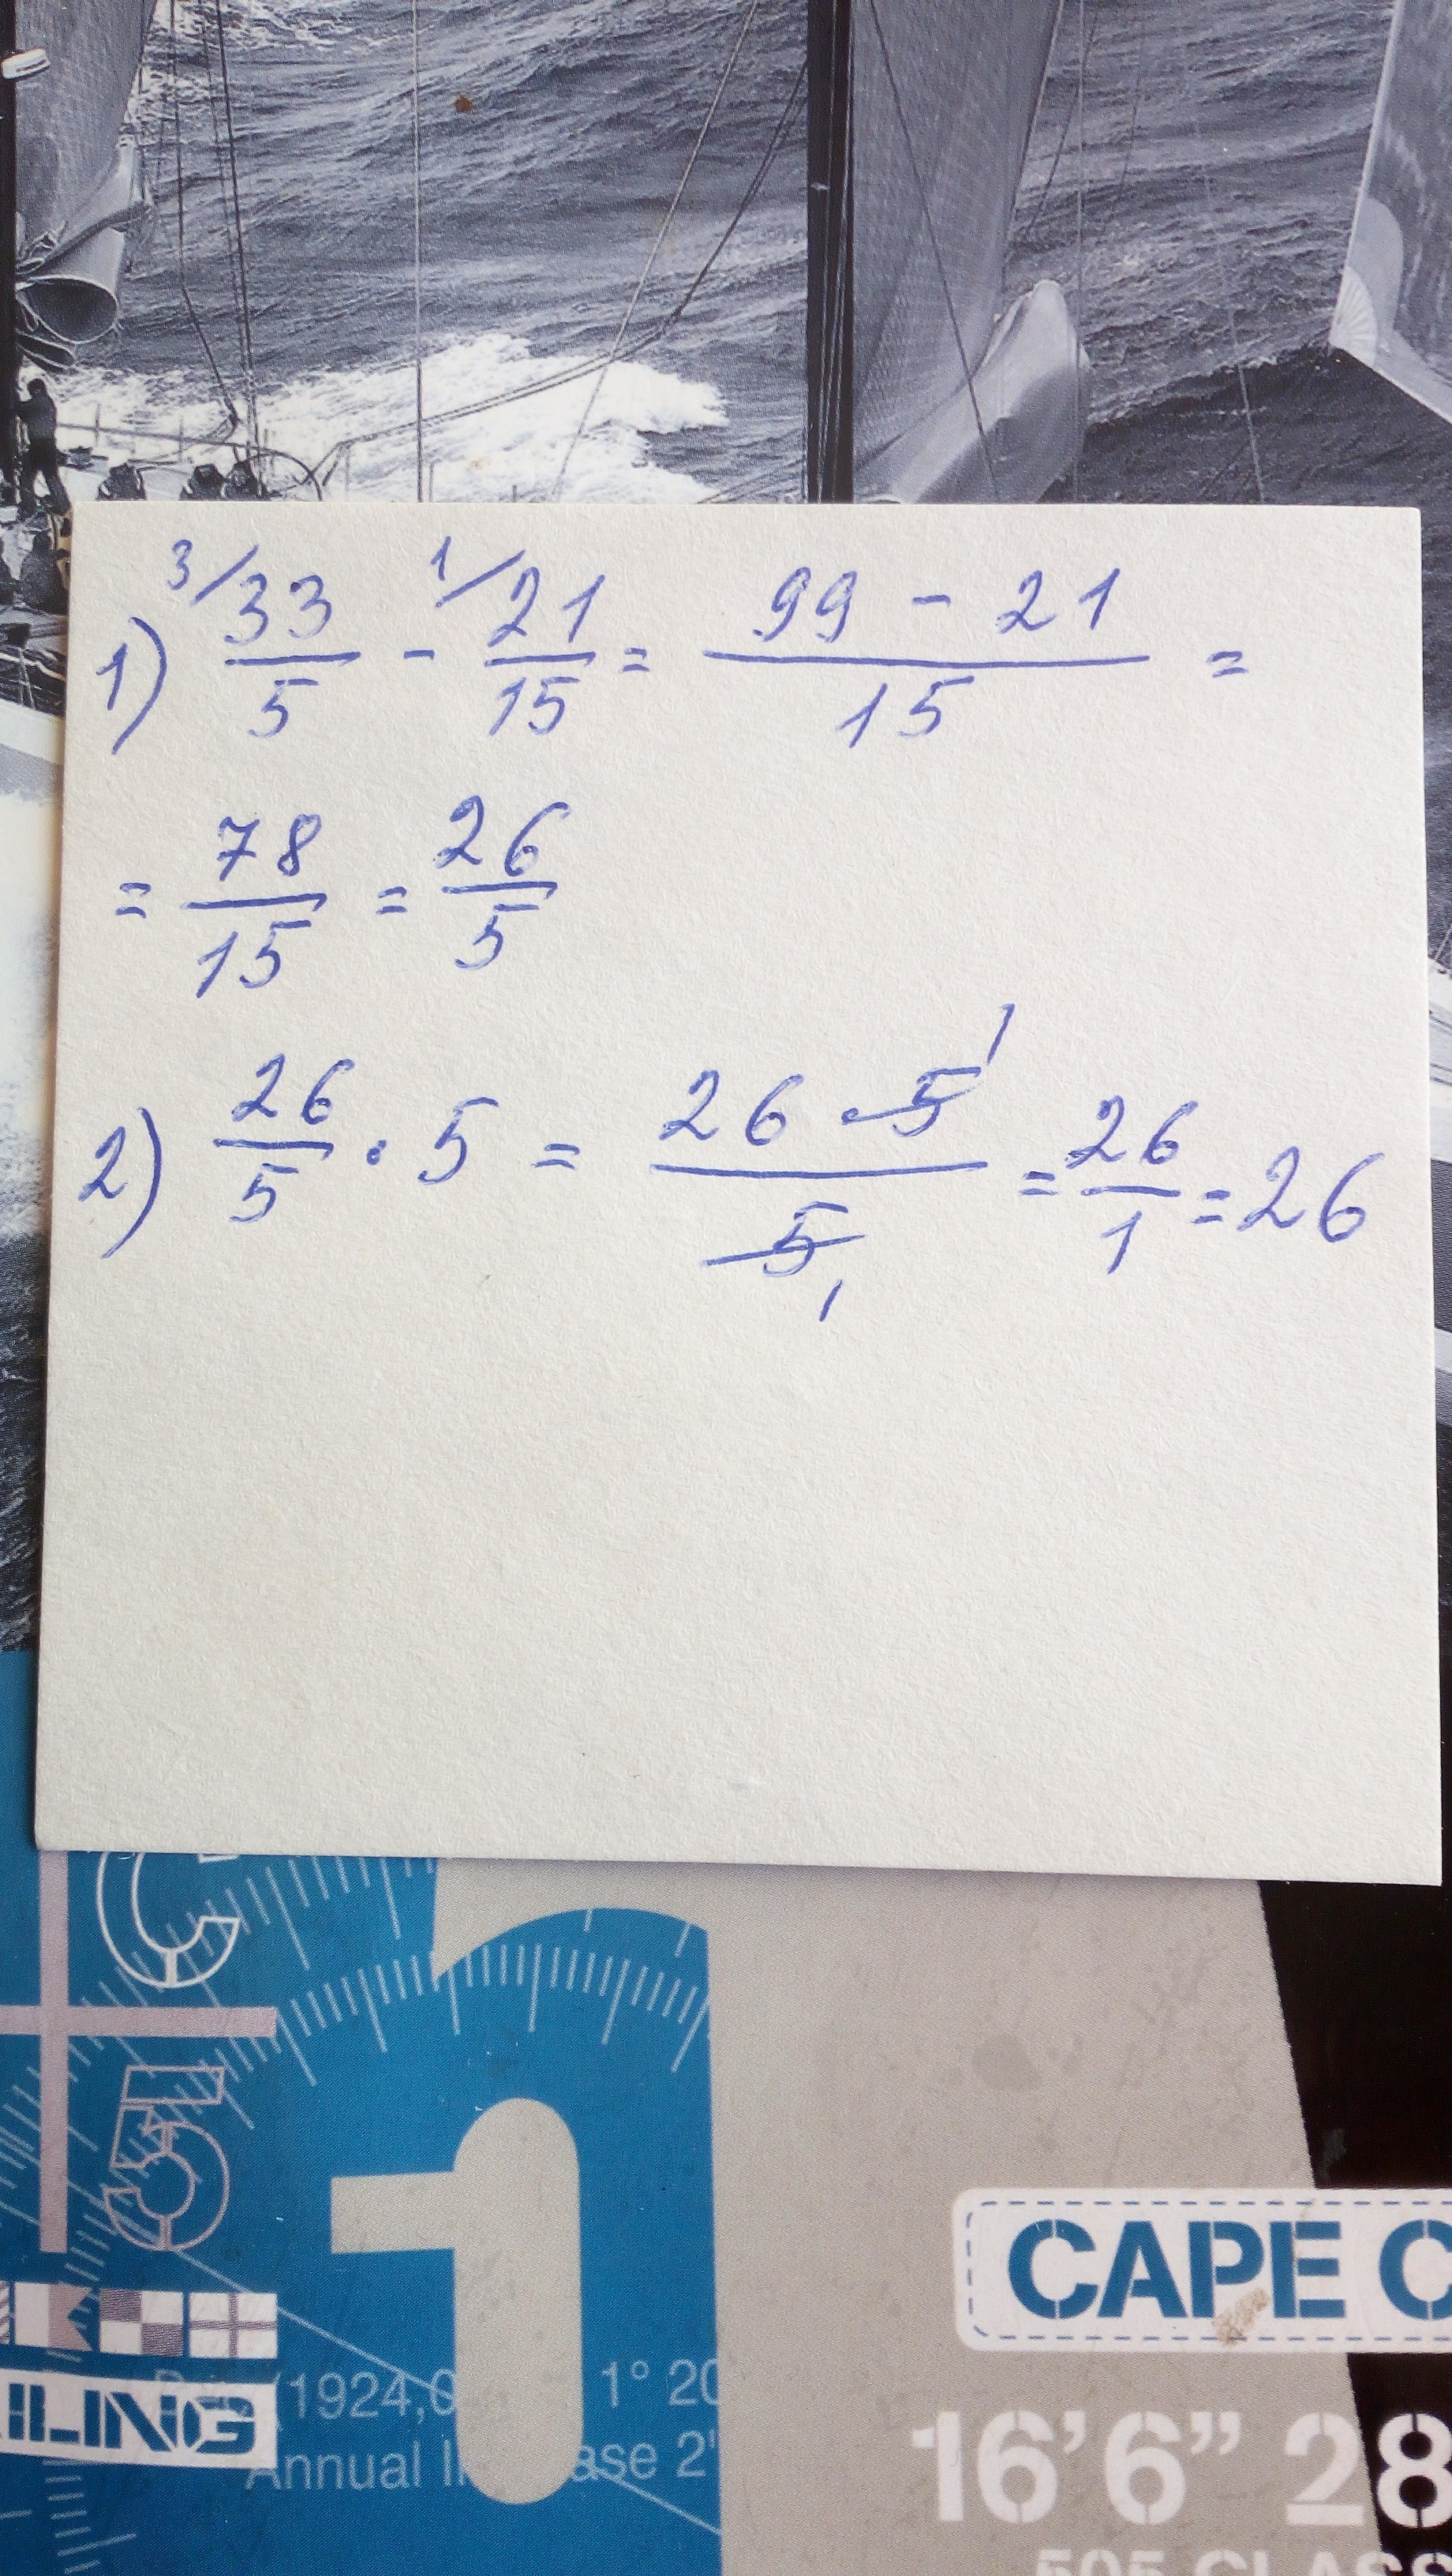 1) 3/33/5 - 1/21/15 = 99 - 21/15 =
= 78/15 = 26/5
2) 26/5 · 5 = 26 · 5 1/5 1 = 26/1 = 26
C
5
1
CAPE C
ILING
(1924,0 1° 20
Annual ase 2'
16'6” 28
505 CLASS